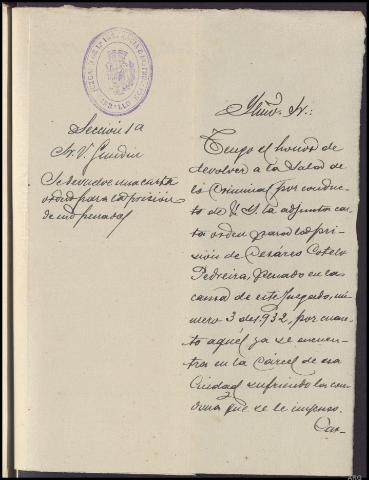 JUZGADO DE 1ª INSTANCIA E INSTRUCCIÓN
CARBALLO
Sección 1ª
Sr. V. Gundin
Se devuelve una carta
orden para la prision
de un penado
Yltmo. Sr.:
Tengo el honor de
devolver a la Sala de
lo Criminal por conduc-
to de V. Y. la adjunta car-
ta orden para la pri-
sión de Cesáreo Cotelo
Pedreira, penado en la
causa de este Juzgado, nú-
mero 3 de 1.932, por cuan-
to aquél ya se encuen-
tra en la cárcel de esa
Ciudad sufriendo la con-
dena que se le impuso.
Car-